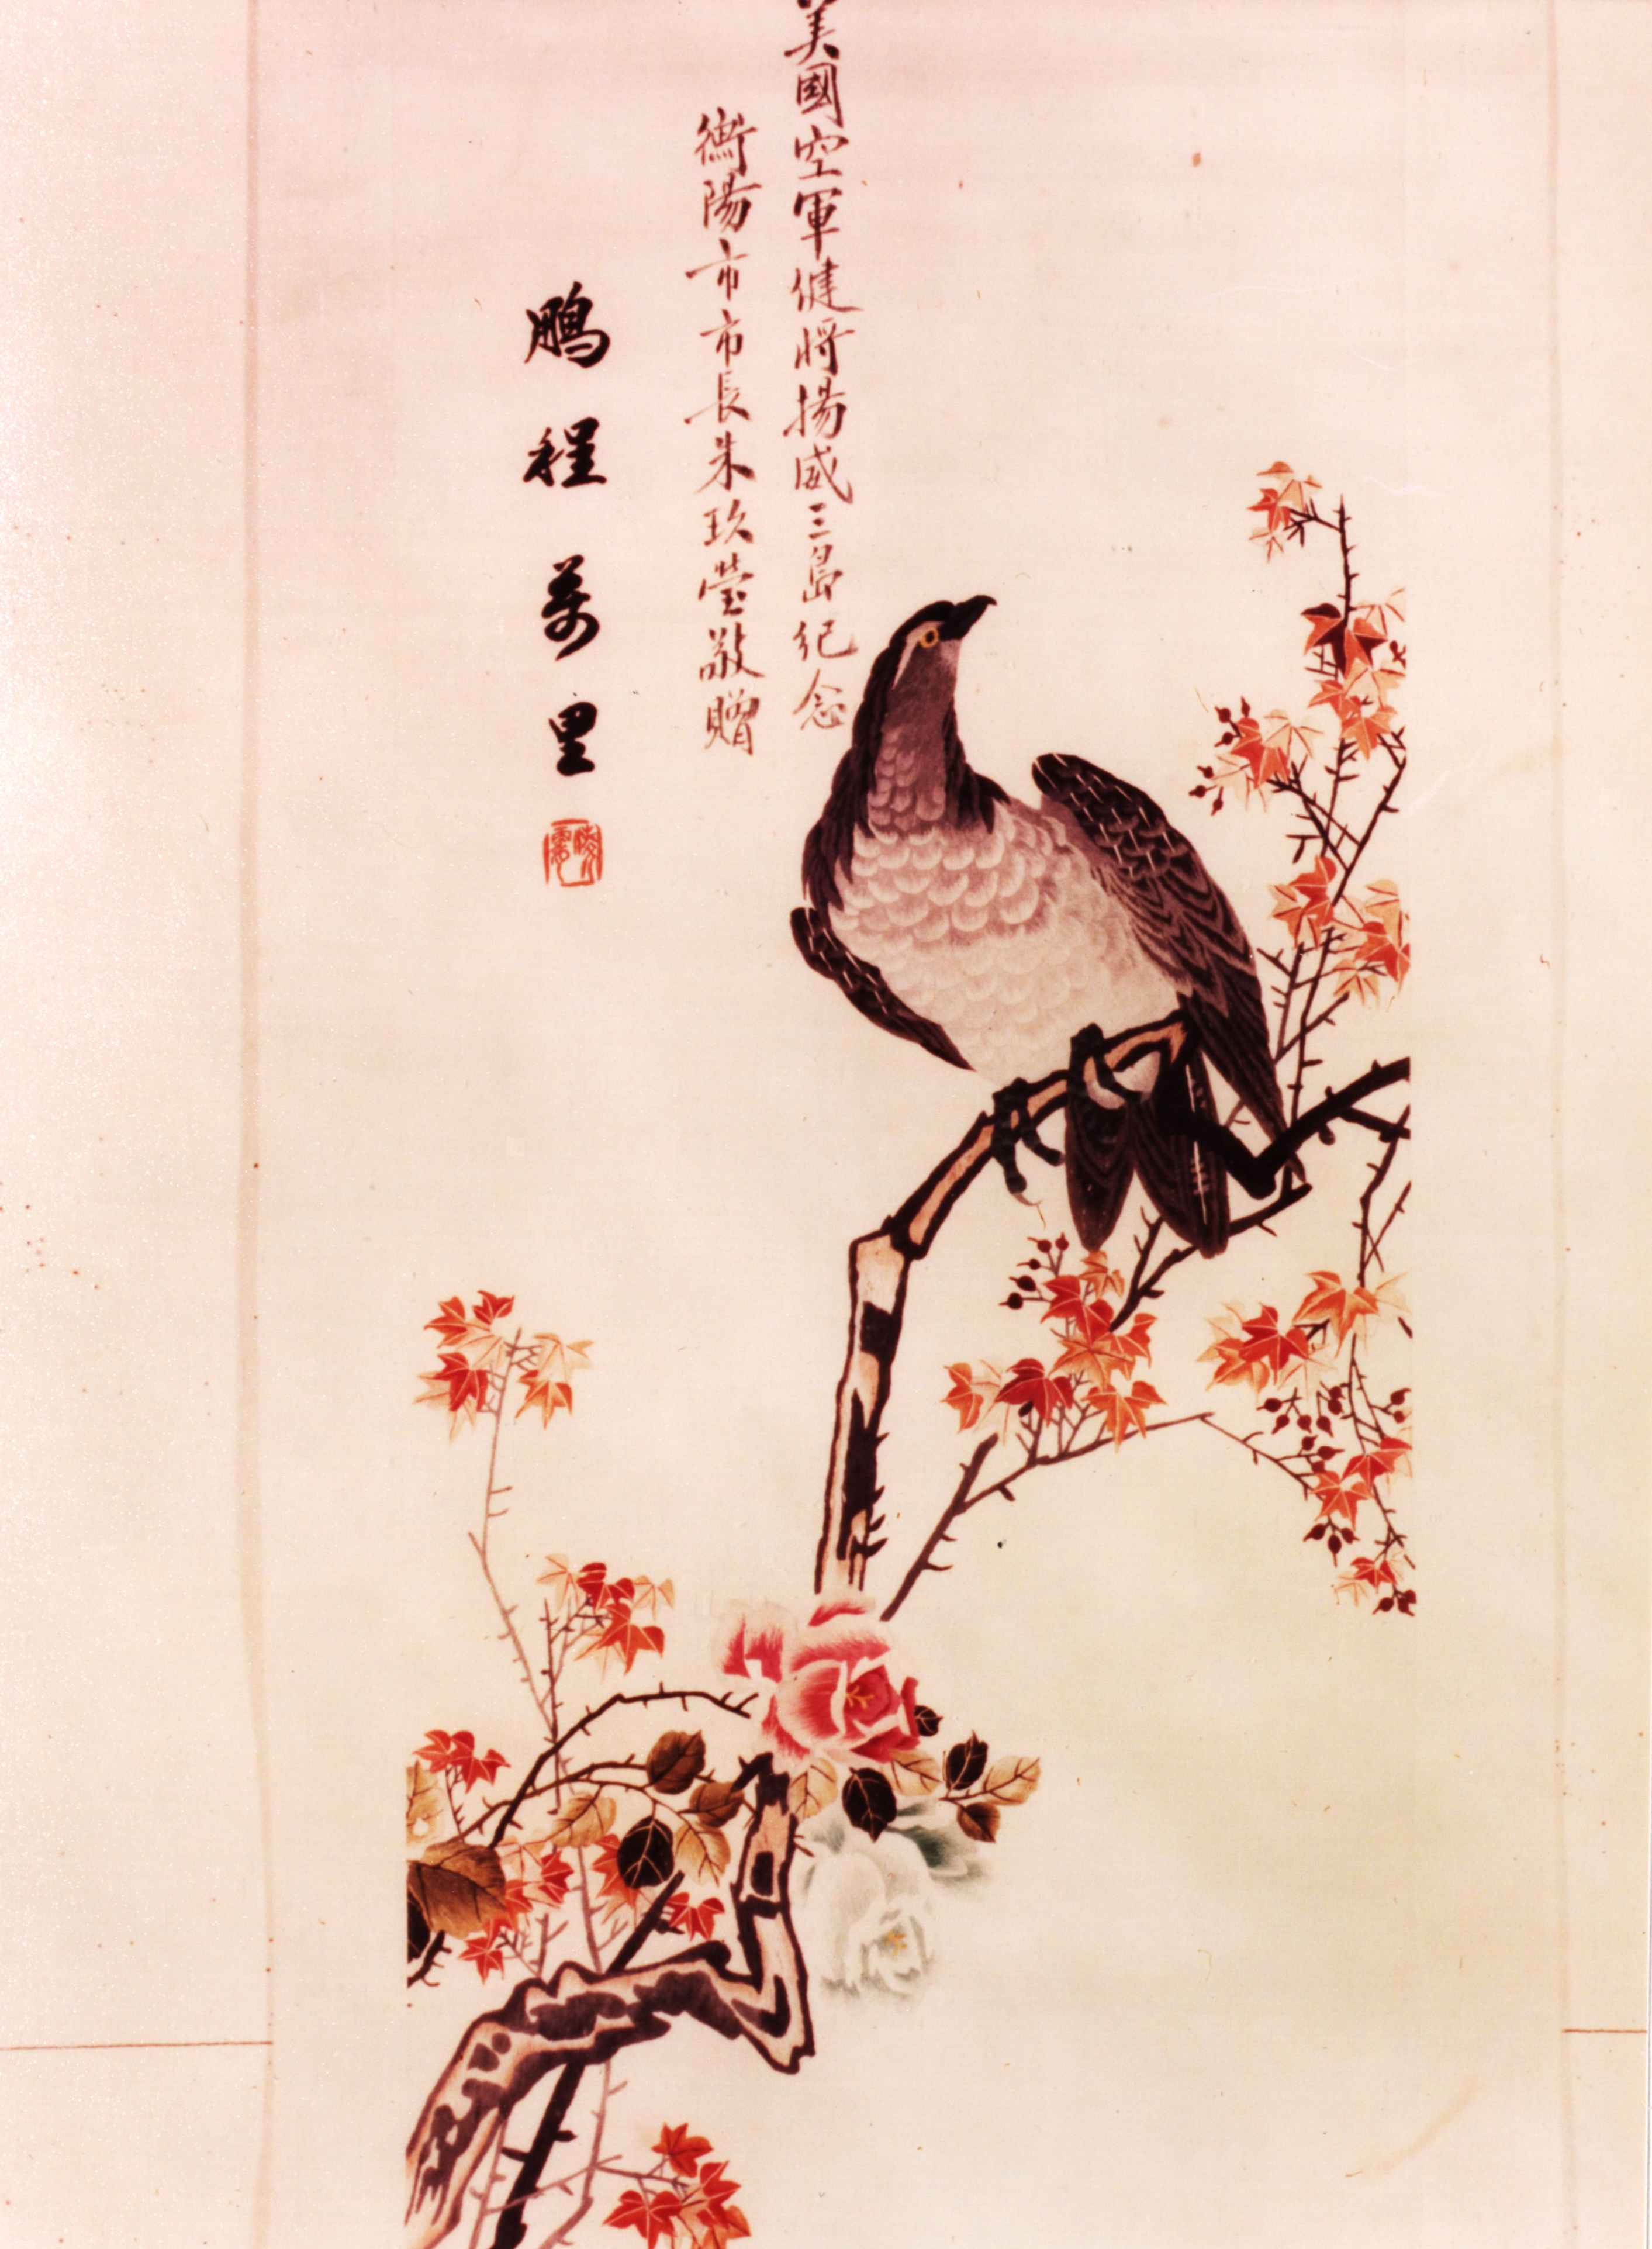 美國空軍健將揚威三島紀念
衡陽市市長朱玖瑩敬贈
鵬程萬里